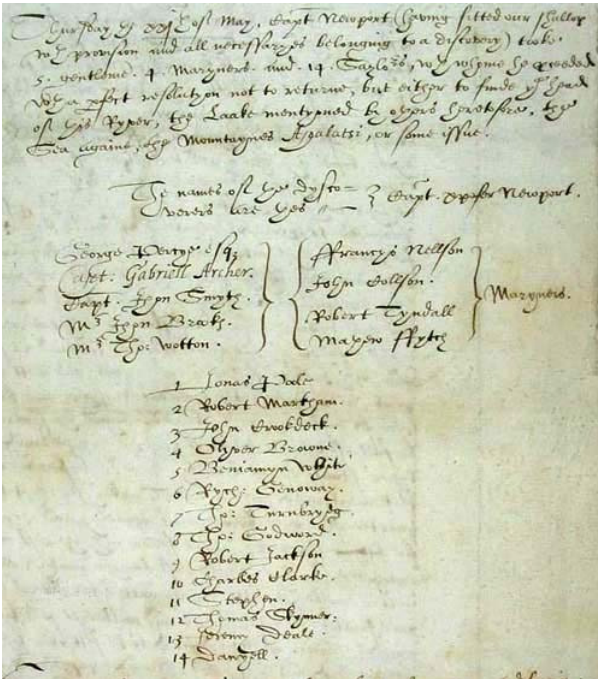 Thursday ye xxjth of May, Capt Newport (having fitted our shallop
wth provision and all necessaryes belonging to a discovery) tooke
5. gentlemē. 4. Maryners. and. 14. Saylors, wth whome he proceeded
wth a perfect resolutyon not to returne, but either to finde ye head
of this Ryver, the Laake mentyoned by others heretofore, the
Sea againe, the Mountaynes Apalatsi, or some issue.
The names of the dysco= Capt. Xpofer Newport.
verers are thes
George Percye esq
Capt: Gabriell Archer.
Capt. Jhon Smyth.
Mr Jhon Brookes.
Mr Tho: Wotton.
ffrancys Nellson
John Collson.
Robert Tyndall
Mathew ffytch
Maryners.
1 Jonas Poole
2 Robert Markham.
3 John Crookdeck.
4 Olyver Browne.
5 Beniamyn White
6 Rych: Genoway.
7 Tho: Turnbrydg
8 Tho: Godword.
9 Robert Jackson
10 Charles Clarke.
11 Stephen.
12 Thomas Skynner.
13 Jeremy Deale.
14 Danyell.